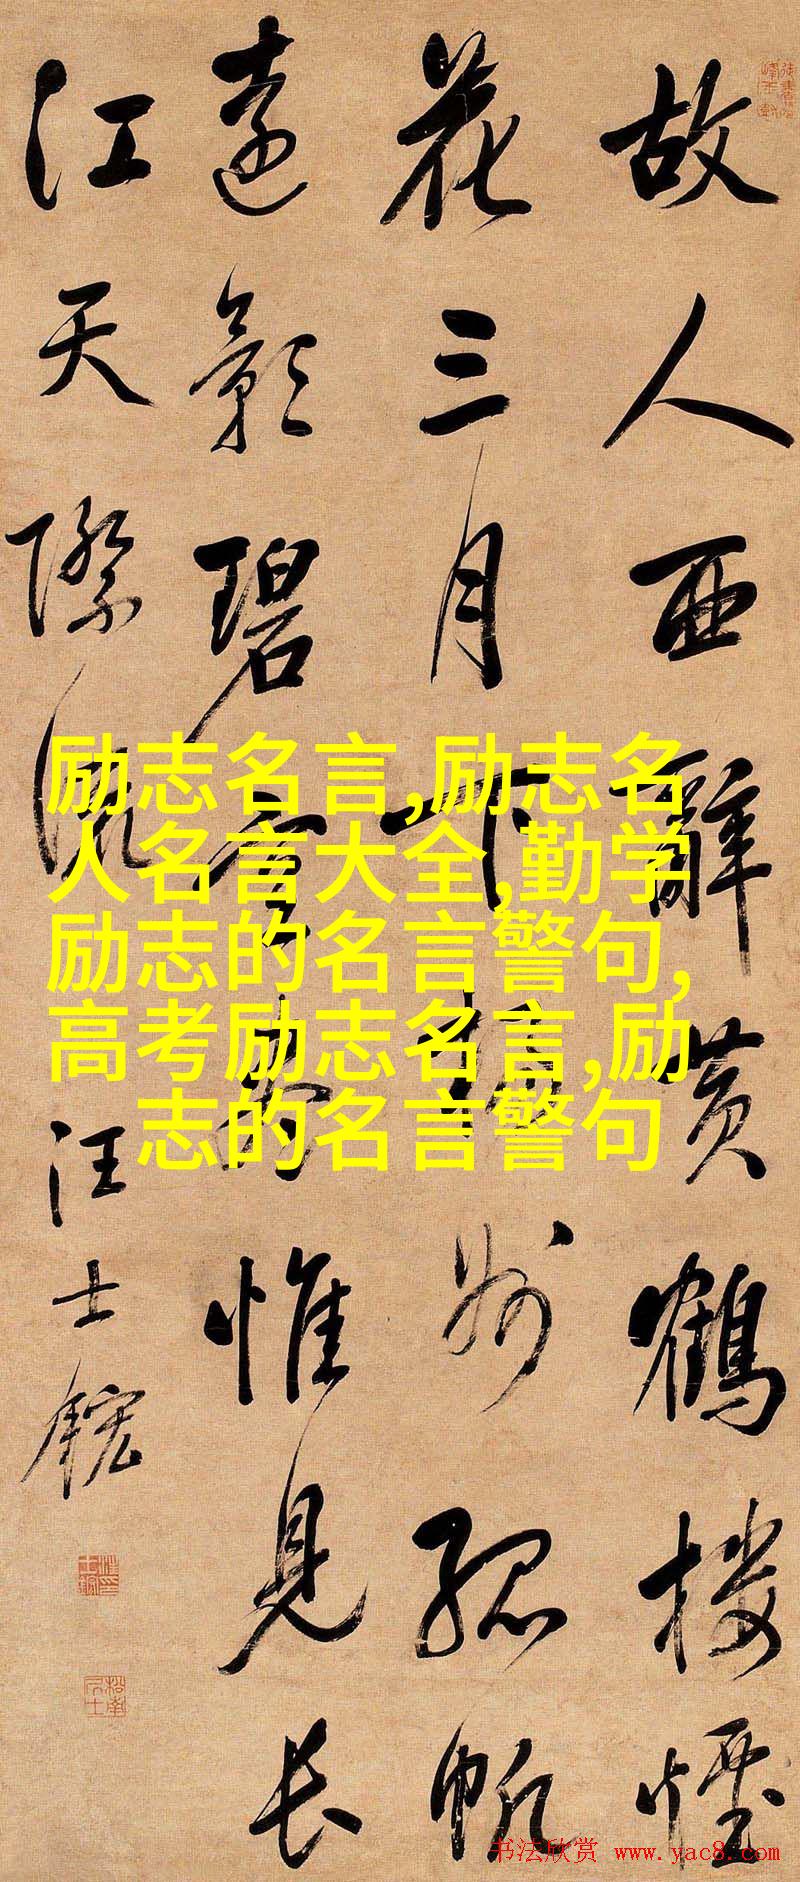 故人西辭黄鶴樓煙
花三月下揚州孤帆
遠影碧空盡惟見長
江天際流
汪士鋐
励志名言,励志名
人名言大全,勤学
励志的名言警句,
高考励志名言,励
志的名言警句
书法欣赏 www.yac8.com